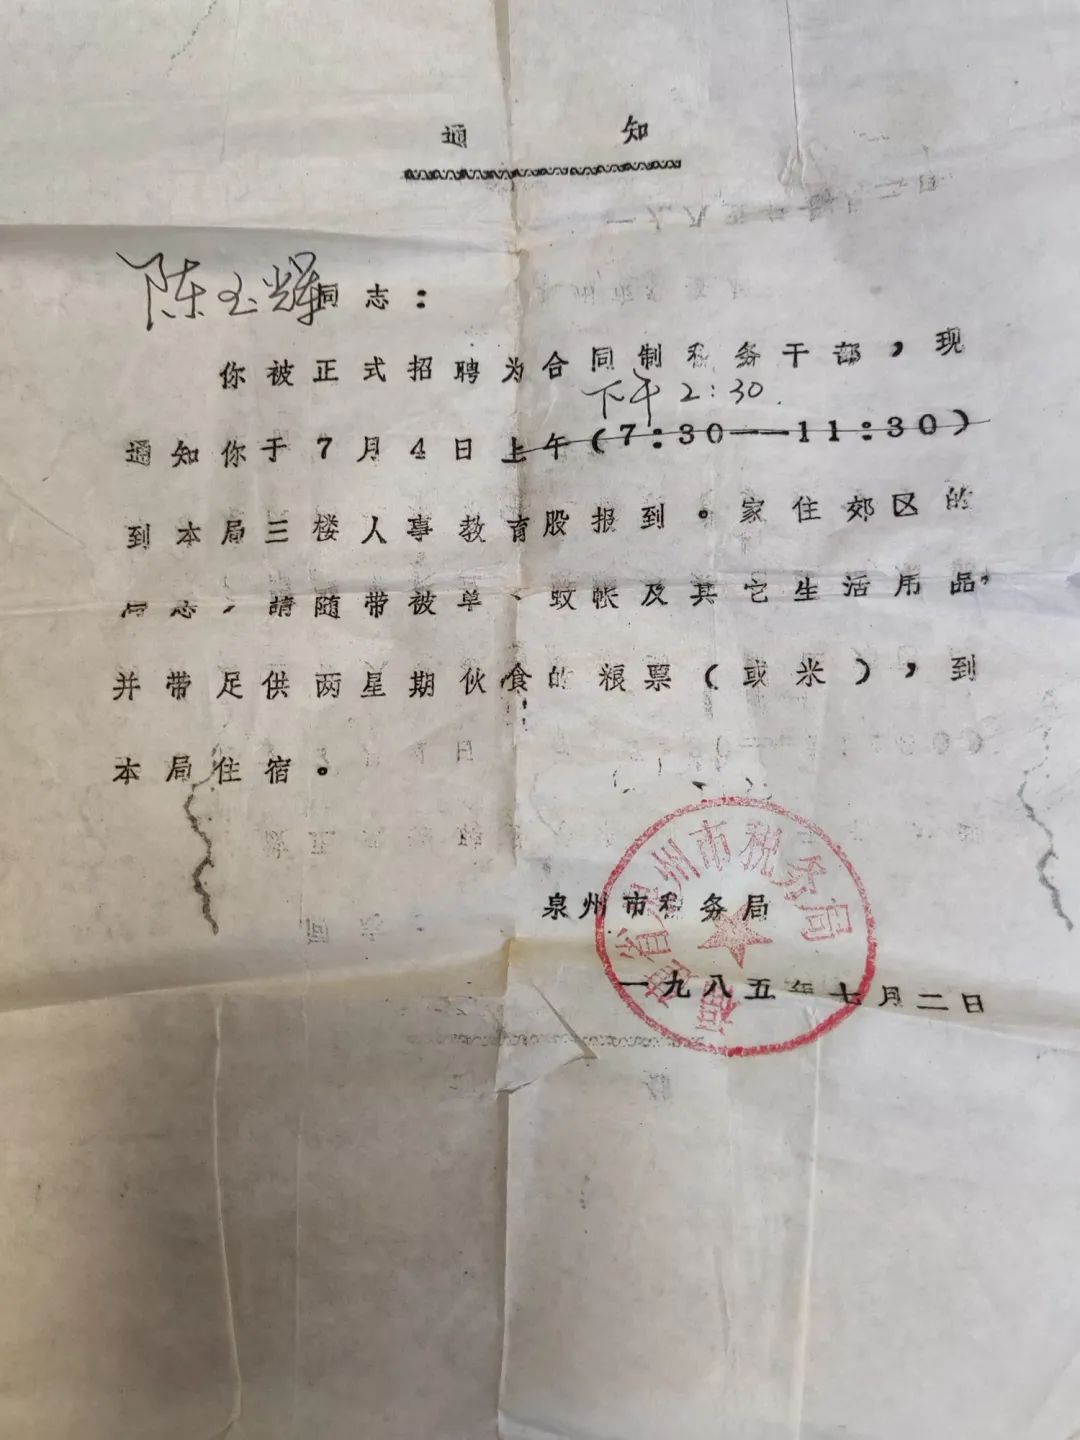 通 知
陈玉辉同志：
你被正式招聘为合同制税务干部，现
下午2:30.
通知你于7月4日上午(7:30——11:30)
到本局三楼人事教育股报到。家住郊区的
同志，請随带被单、蚊帐及其它生活用品，
并带足供两星期伙食的粮票(或米)，到
本局住宿。
泉州市税务局
一九八五年七月二日
福建省泉州市税务局